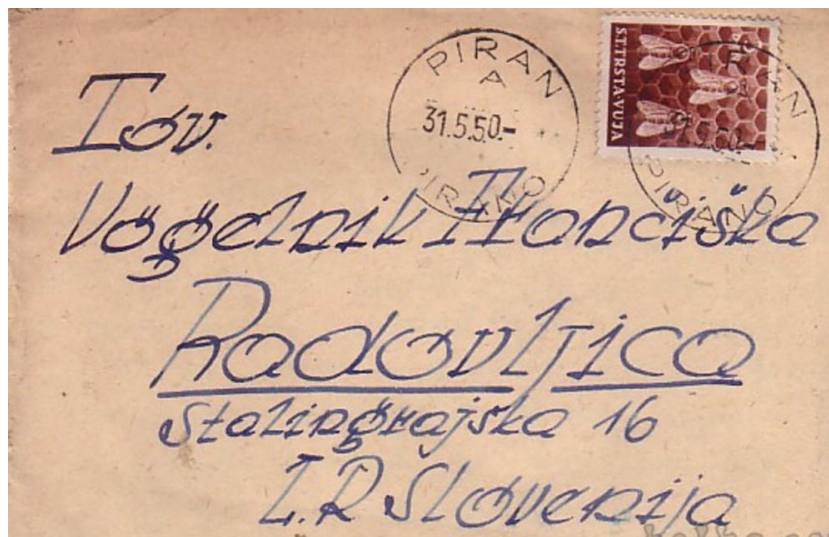 PIRAN
A
31.5.50.-
PIRANO
S.T.TRSTA-VUJA
PIRAN
A
31.5.50.-
PIRANO
Tov.
Vogelnik Frančiška
Radovljica
Stalingrajska 16
L.R Slovenija